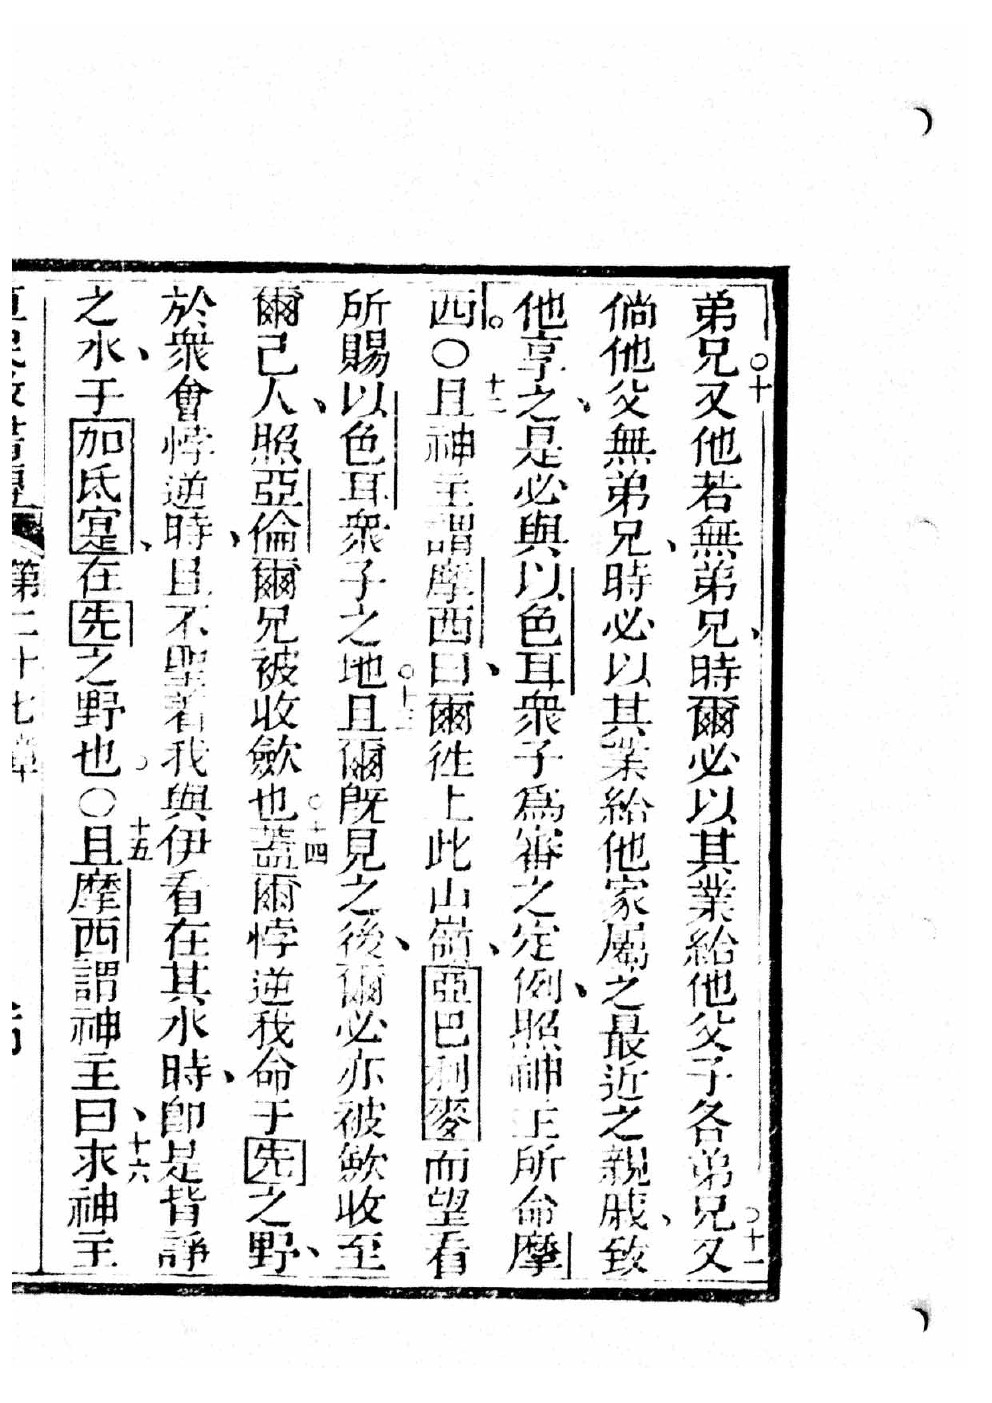 弟兄○十又他若無弟兄、時爾必以其業給他父子各弟兄○十一又
倘他父無弟兄、時必以其業給他家屬之最近之親戚、致
他享之、是必與以色耳衆子爲審之定例、照神主所命摩
西。○十二且神主謂摩西曰、爾徃上此山嶺、亞巴利麥而望看
所賜以色耳衆子之地○十三且爾既見之後、爾必亦被歛收至
爾己人、照亞倫爾兄被收歛也○十四蓋爾悖逆我命于先之野、
於衆會悖逆時、且不聖着我與伊看在其水時、卽是皆諍
之水、于加氐寔、在先之野也。○十五且摩西謂神主曰、十六求神主
第二十七章